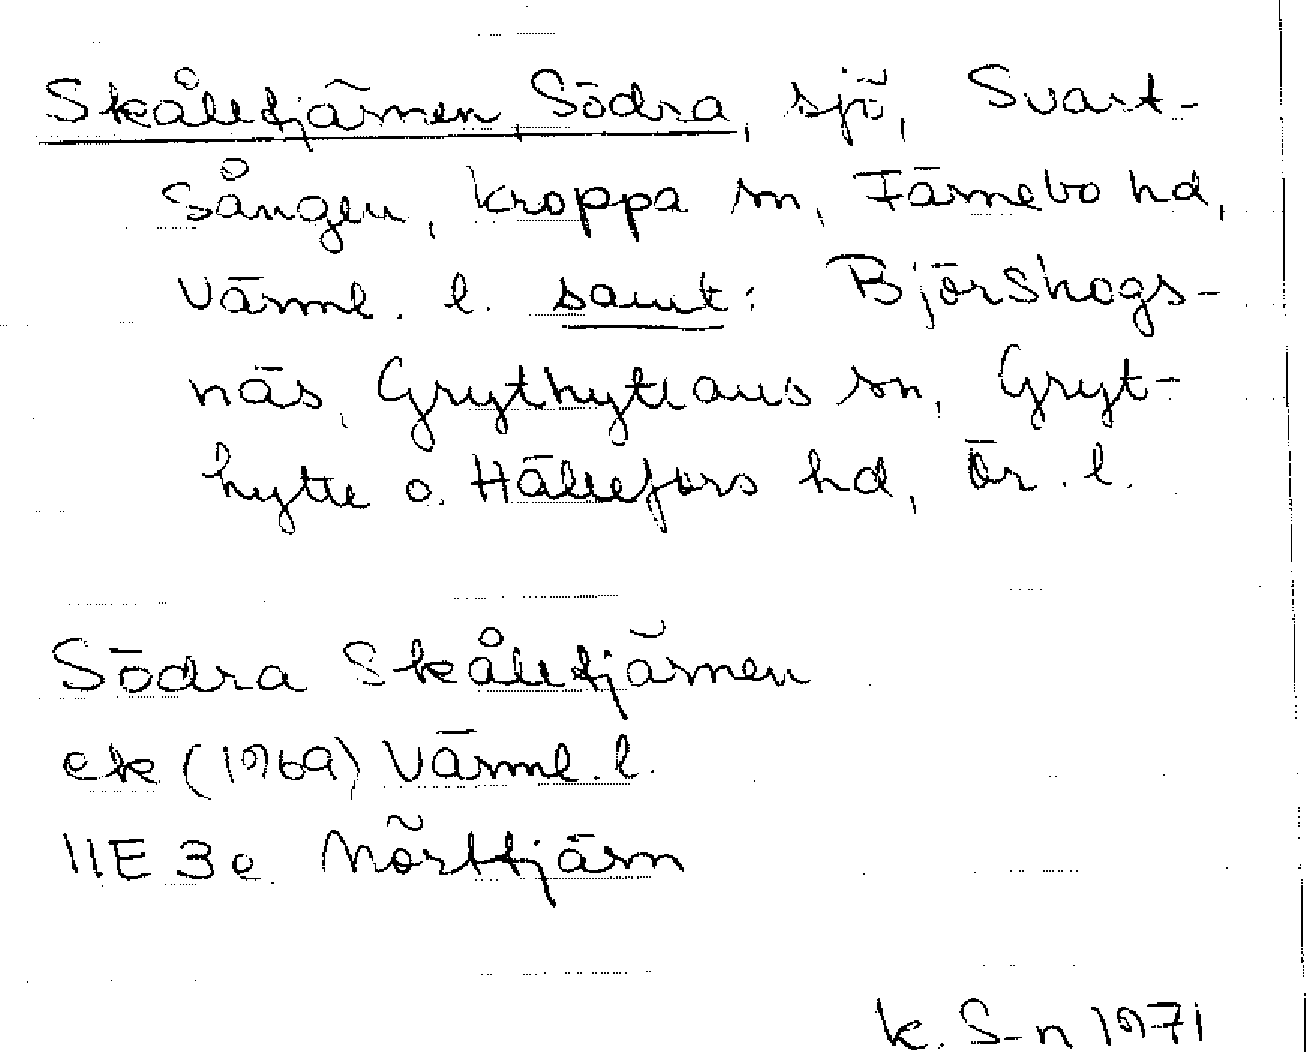 Skåltjärnen, Södra, sjö, Svart-
sången, Kroppa sn, Färnebo hd,
Värml. l. samt: Björskogs-
näs, Grythyttans sn, Gryt-
hytte o. Hällefors hd, Ör. l.
Södra Skåltjärnen
ek (1969) Värml. l.
11E 3e Mörttjärn
K. S-n 1971